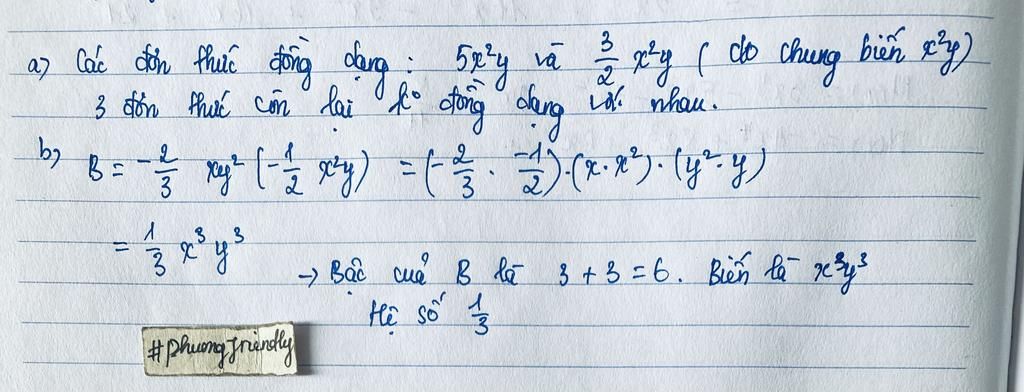 a) Các đơn thức đồng dạng : 5x²y và 3/2 x²y ( do chung biến x²y)
3 đơn thức còn lại k° đồng dạng với nhau.
b) B = -2/3 xy² (-1/2 x²y) = (-2/3 · -1/2)·(x·x²)·(y²·y)
= 1/3 x³y³
→ Bậc của B là 3 + 3 = 6. Biến là x³y³
Hệ số 1/3
#phuongfriendly